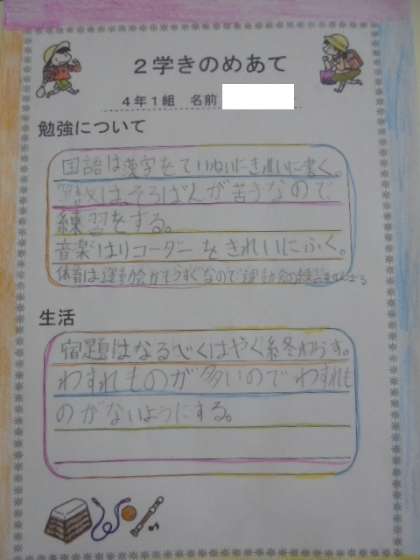 2学きのめあて
4年1組 名前
勉強について
国語は漢字をていねいにきれいに書く。
算数はそろばんが苦手なので
練習をする。
音楽はリコーダーをきれいにふく。
体育は運動会が
生活
宿題はなるべくはやく終わらす。
わすれものが多いのでわすれも
のがないようにする。